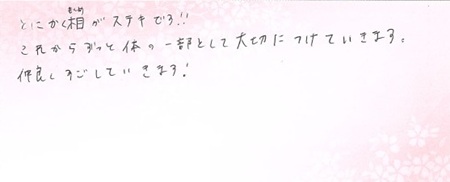 とにかく木目(もくめ)がステキです!!
これからずっと体の一部として大切につけていきます。
仲良くすごしていきます!